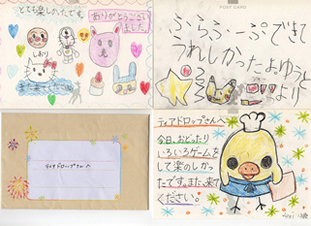 とても楽しかったです。
ありがとうござい
ました
しおり
また来てね
POST CARD
ふらふーぷできて
うれしかったよ
より
ティアドロップさんへ
ティアドロップさんへ
今日、おどったり
いろいろゲームを
して楽のしか
たったです。また、来て
ください。